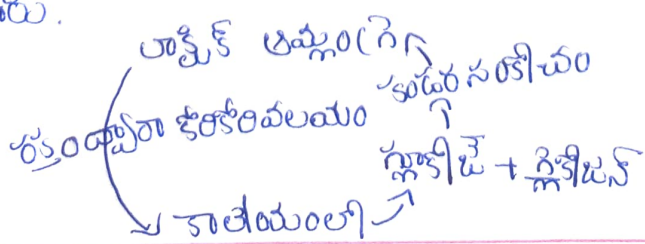 రు.
లాక్టిక్ ఆమ్లం
కండర సంకోచం
రక్తం ద్వారా కోరికోరివలయం
గ్లూకోజ్ + గ్లైకోజన్
కాలేయంలో